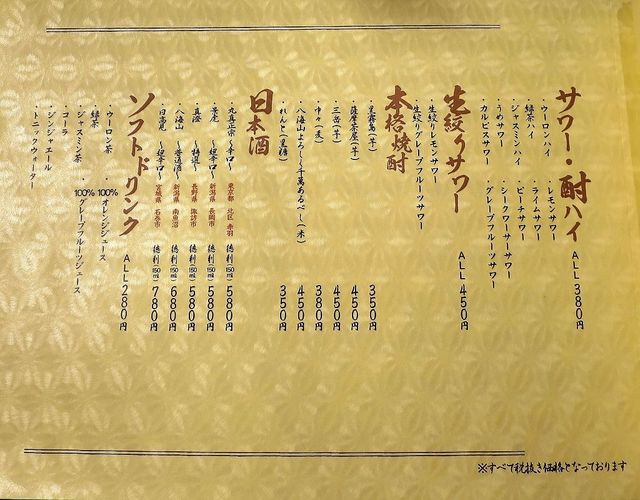 サワー・酎ハイ ALL 380円
・ウーロンハイ ・レモンサワー
・緑茶ハイ ・ライムサワー
・ジャスミンハイ ・ピーチサワー
・うめサワー ・シークワーサーサワー
・カルピスサワー ・グレープフルーツサワー
生絞りサワー ALL 450円
・生絞りレモンサワー
・生絞りグレープフルーツサワー
本格焼酎
・黒霧島(芋) 350円
・薩摩茶屋(芋) 450円
・三岳(芋) 450円
・中々(麦) 380円
・八海山よろしく千萬あるべし(米) 450円
・れんと(黒糖) 350円
日本酒
・丸真正宗 〜辛口〜 東京都 北区 赤羽 徳利(150ml) 580円
・景虎 〜超辛口〜 新潟県 長岡市 徳利(150ml) 580円
・真澄 〜特選〜 長野県 諏訪市 徳利(150ml) 580円
・八海山 〜普通酒〜 新潟県 南魚沼 徳利(150ml) 680円
・日高見 〜超辛口〜 宮城県 石巻市 徳利(150ml) 780円
ソフトドリンク ALL 280円
・ウーロン茶 ・100% オレンジジュース
・緑茶 ・100% グレープフルーツジュース
・ジャスミン茶
・コーラ
・ジンジャエール
・トニックウォーター
※すべて税抜き価格となっております